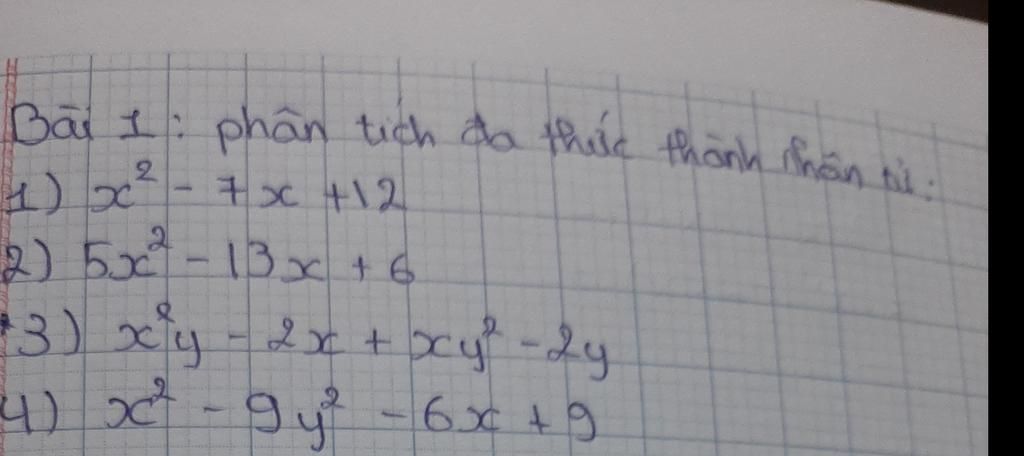 Bài 1: phân tích đa thức thành nhân tử:
1) x² - 7x + 12
2) 5x² - 13x + 6
3) x²y - 2x + xy² - 2y
4) x² - 9y² - 6x + 9